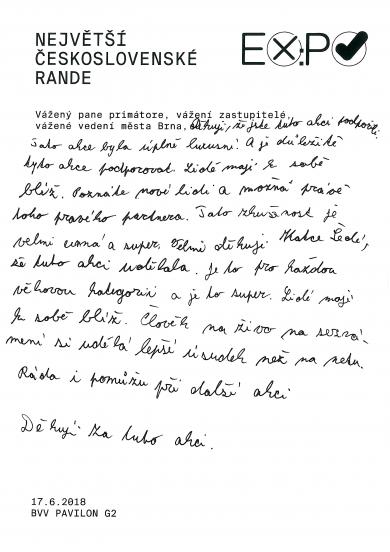 NEJVĚTŠÍ
ČESKOSLOVENSKÉ
RANDE
EX:PO
Vážený pane primátore, vážení zastupitelé,
vážené vedení města Brna, děkuji, že jste tuto akci podpořili.
Tato akce byla úplně luxusní! A je důležité
tyto akce podporovat. Lidé mají k sobě
blíž. Poznáte nové lidi a možná právě
toho pravého partnera. Tato zkušenost je
velmi cenná a super. Velmi děkuji Katce Šedé,
že tuto akci udělala. Je to pro každou
věkovou kategorii a je to super. Lidé mají
k sobě blíž. Člověk na živo na sezná-
mení si udělá lepší úsudek než na netu.
Ráda i pomůžu při další akci
Děkuji za tuto akci.
17.6.2018
BVV PAVILON G2